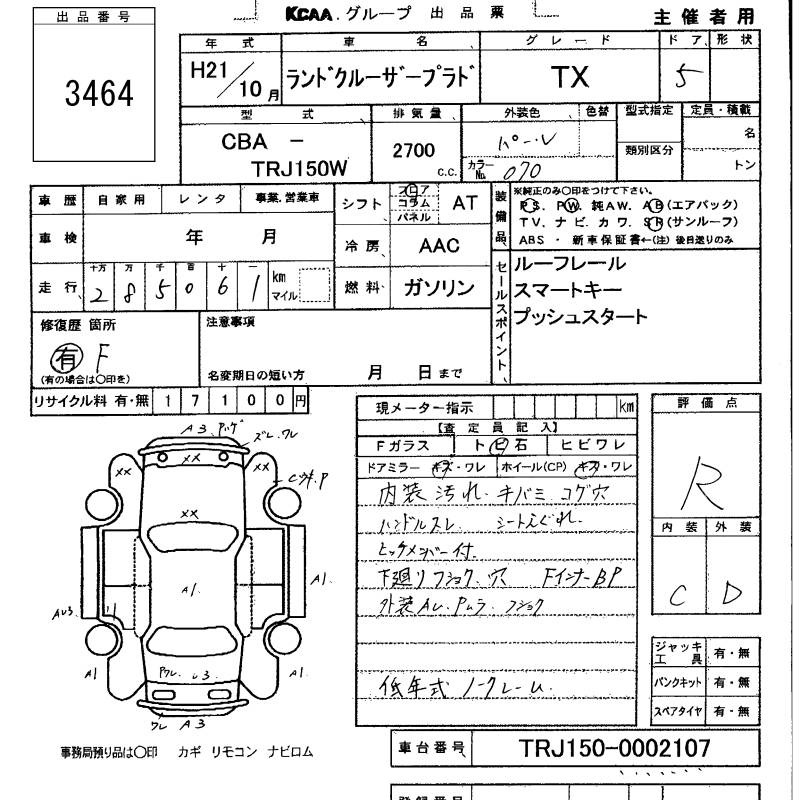 KCAA グループ 出品票
主催者用
出品番号
3464
年式 車名 グレード ドア 形状
H21/10月 ランドクルーザープラド TX 5
型式 排気量 外装色 色替 型式指定 定員・積載
CBA - TRJ150W 2700 c.c. パール 類別区分 名
カラーNo. 070 トン
車歴 自家用 レンタ 事業.営業車
シフト フロア コラム パネル AT
装備品 ※純正のみ○印をつけて下さい。
P S、P W、純AW、A B(エアバック)
TV、ナビ、カワ、S R(サンルーフ)
ABS・新車保証書←(注)後日送りのみ
車検 年 月
冷房 AAC
走行 十万 万 千 百 十 一
285061 km マイル
燃料 ガソリン
セールスポイント、
ルーフレール
スマートキー
プッシュスタート
修復歴 箇所
有 F
(有の場合は○印を)
注意事項
名変期日の短い方 月 日まで
リサイクル料 有・無 17100円
現メーター指示 km
【査定員記入】
Fガラス トビ石 ヒビワレ
ドアミラー キズ・ワレ ホイール(CP) キズ・ワレ
内装汚れ. キバミ コゲ穴
ハンドルスレ シートえぐれ.
ヒッチメンバー付.
下廻りフショク. 穴 FインナーBP
外装AU. Pムラ フショク
低年式 ノークレーム
評価点
R
内装 外装
C D
A3
ズレ.ワレ
XX
XX
XX
XX
A1
A1
A1
A1
ワレ A3
ジャッキ工具 有・無
パンクキット 有・無
スペアタイヤ 有・無
事務局預り品は○印 カギ リモコン ナビロム
車台番号 TRJ150-0002107